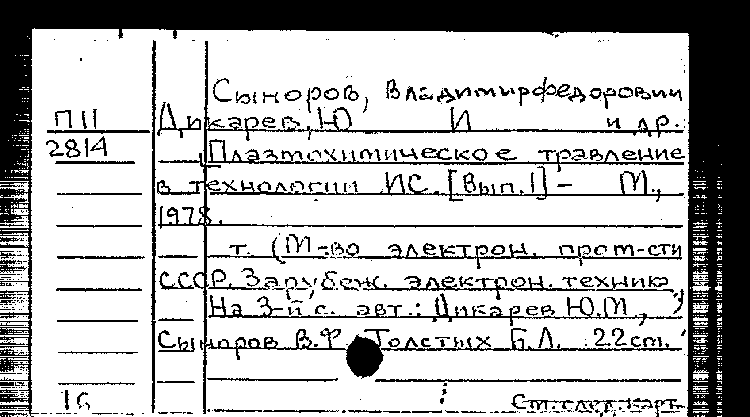 Сыноров, Владимир Федорович
П11 Дикарев, Ю И и др.
2814 Плазмохимическое травление
в технологии ИС. [Вып. 1] – М.,
1978.
т. (М-во электрон. пром-сти
СССР. Зарубеж. электрон. техника
На 3-й с. авт.: Дикарев Ю.И,
Сыноров В.Ф. Толстых Б.Л. 22 см.
16 См. след. карт.